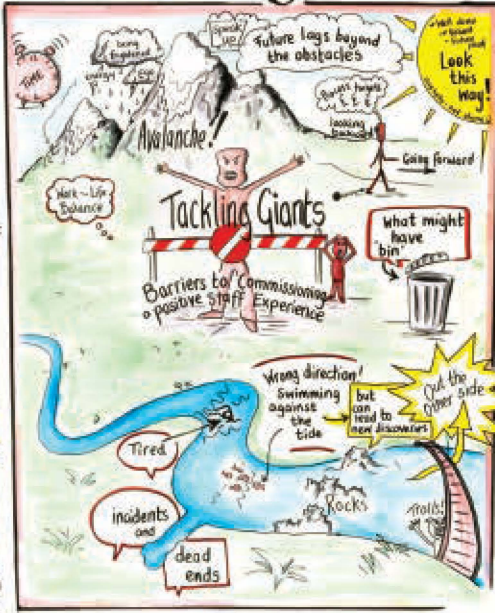 TIME
being
frightened
energy
Eye
Speak
up
Future lays beyond
the obstacles
Look
this
way!
targets
£ £ £
looking
backward
Going forward
Avalanche!
Work-Life
Balance
Tackling Giants
Barriers to Commissioning
a positive Staff Experience
What might
have
'bin'
Wrong direction!
swimming
against
the
tide
but
can
lead to
new discoveries
Out the
other side
Tired
Rocks
Trolls!
incidents
and
dead
ends